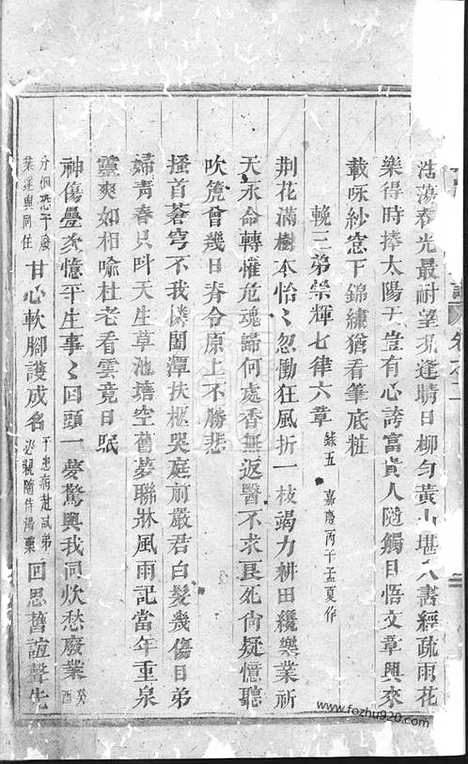 浩蕩春光最耐望況逢晴日柳勻黃山堪入畫經疏雨花
樂得時捧太陽于豈有心誇富貴人隨觸目悟文章興來
載咏紗窓下錦繡猶看筆底粧
輓三弟崇輝七律六章 錄五 嘉慶丙子孟夏作
荆花滿樹本怡〻忽慟狂風折一枝竭力耕田纔樂業祈
天永命轉罹危魂歸何處香無返醫不求良死尚疑憶聽
吹篪曾幾日脊令原上不勝悲
搔首蒼穹不我憐園潭扶柩哭庭前嚴君白髮幾傷日弟
婦青春只呌天生草池塘空舊夢聯牀風雨記當年重泉
靈爽如相喻杜老看雲竟日眠
神傷疊次憶平生事〻回頭一夢驚與我同炊愁廢業 癸酉
分個恐予廢業遂與同住 甘心軟腳護成名 于患病赴試弟必親隨侍湯藥 回思舊誼聲先
卷之二
www.fozhu920.com